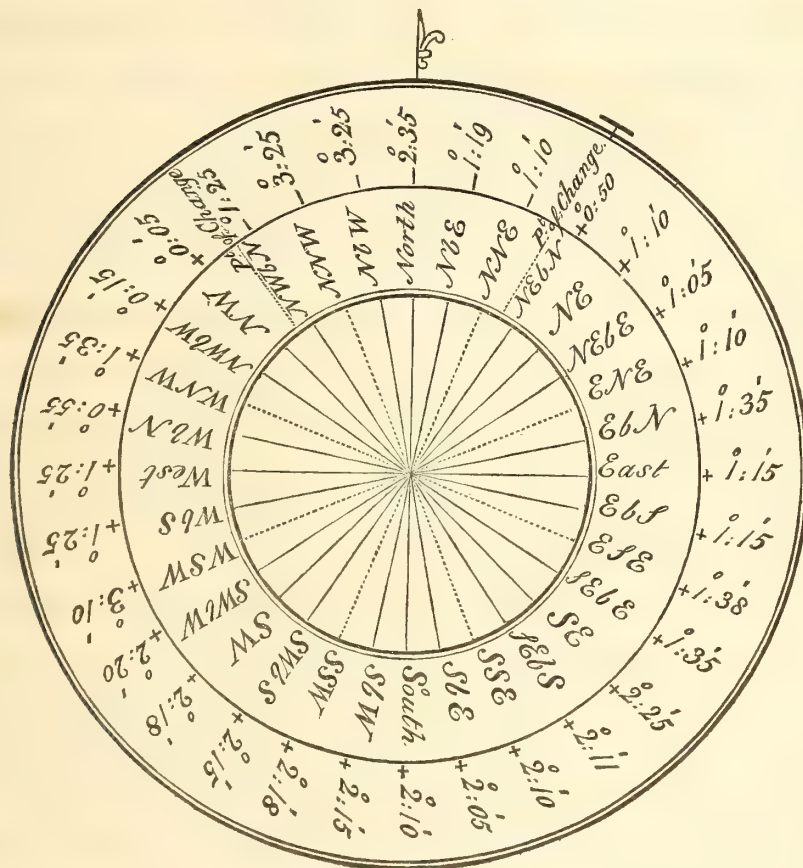 North
− 2°:35'
NbE
− 1°:19'
NNE
− 1°:10'
Pt. of Change.
NEbN
+ 0°:50'
NE
+ 1°:10'
NEbE
+ 1°:05'
ENE
+ 1°:10'
EbN
+ 1°:35'
East
+ 1°:15'
EbS
+ 1°:15'
ESE
+ 1°:38'
SEbE
+ 1°:35'
SE
+ 2°:25'
SEbS
+ 2°:11'
SSE
+ 2°:10'
SbE
+ 2°:05'
South.
+ 2°:10'
SbW
+ 2°:15'
SSW
+ 2°:18'
SWbS
+ 2°:15'
SW
+ 2°:18'
SWbW
+ 2°:20'
WSW
+ 3°:10'
WbS
+ 1°:25'
West
+ 1°:25'
WbN
+ 0°:55'
WNW
+ 1°:35'
NWbW
+ 0°:15'
NW
+ 0°:05'
Pt. of Change
NWbN
− 1°:25'
NNW
− 3°:25'
NbW
− 3°:25'